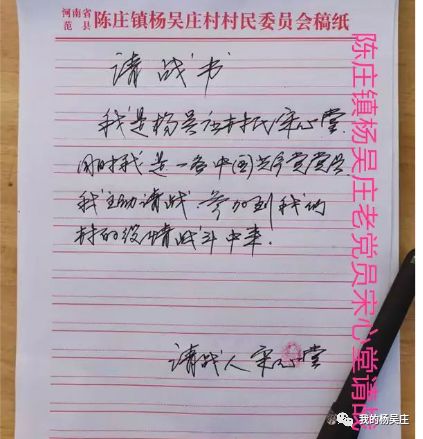 河南省
范县 陈庄镇杨吴庄村村民委员会稿纸
请战书
我是杨吴庄村民宋心堂.
同时我是一名中国共产党党员
我主动请战.参加到我们
村的疫情战斗中来.
请战人宋心堂
陈庄镇杨吴庄老党员宋心堂请战
我的杨吴庄